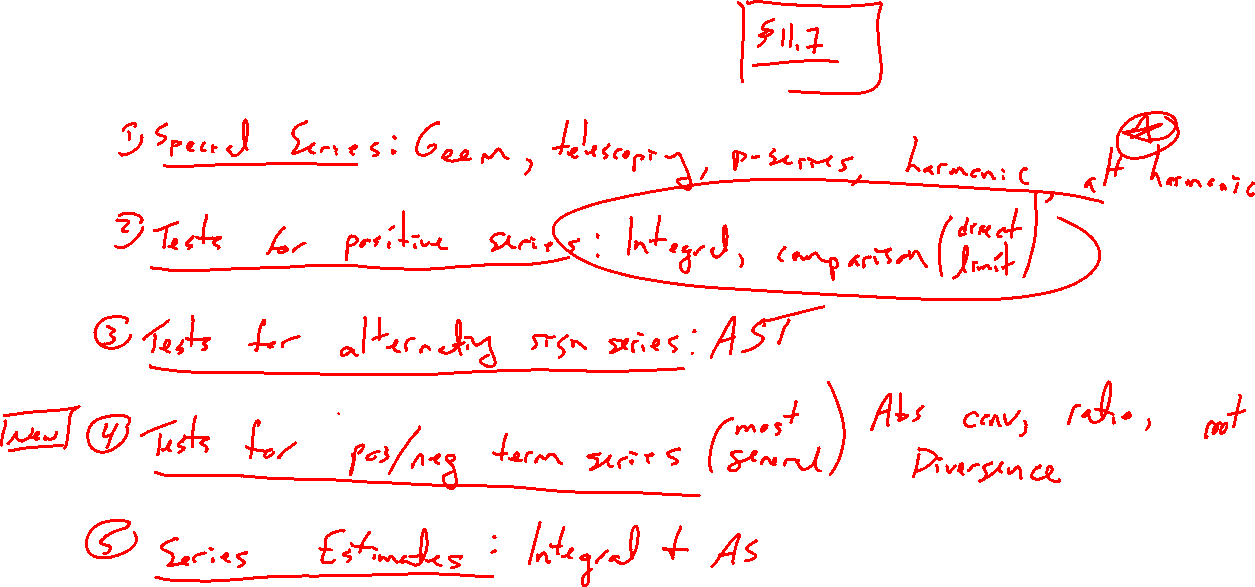 §11.7
1) Special Series: Geom, telescoping, p-series, harmonic, alt harmonic
2) Tests for positive series: Integral, comparison (direct limit)
③ Tests for alternating sign series: AST
New ④ Tests for pos/neg term series (most general) Abs conv, ratio, root
Divergence
⑤ Series Estimates: Integral + AS